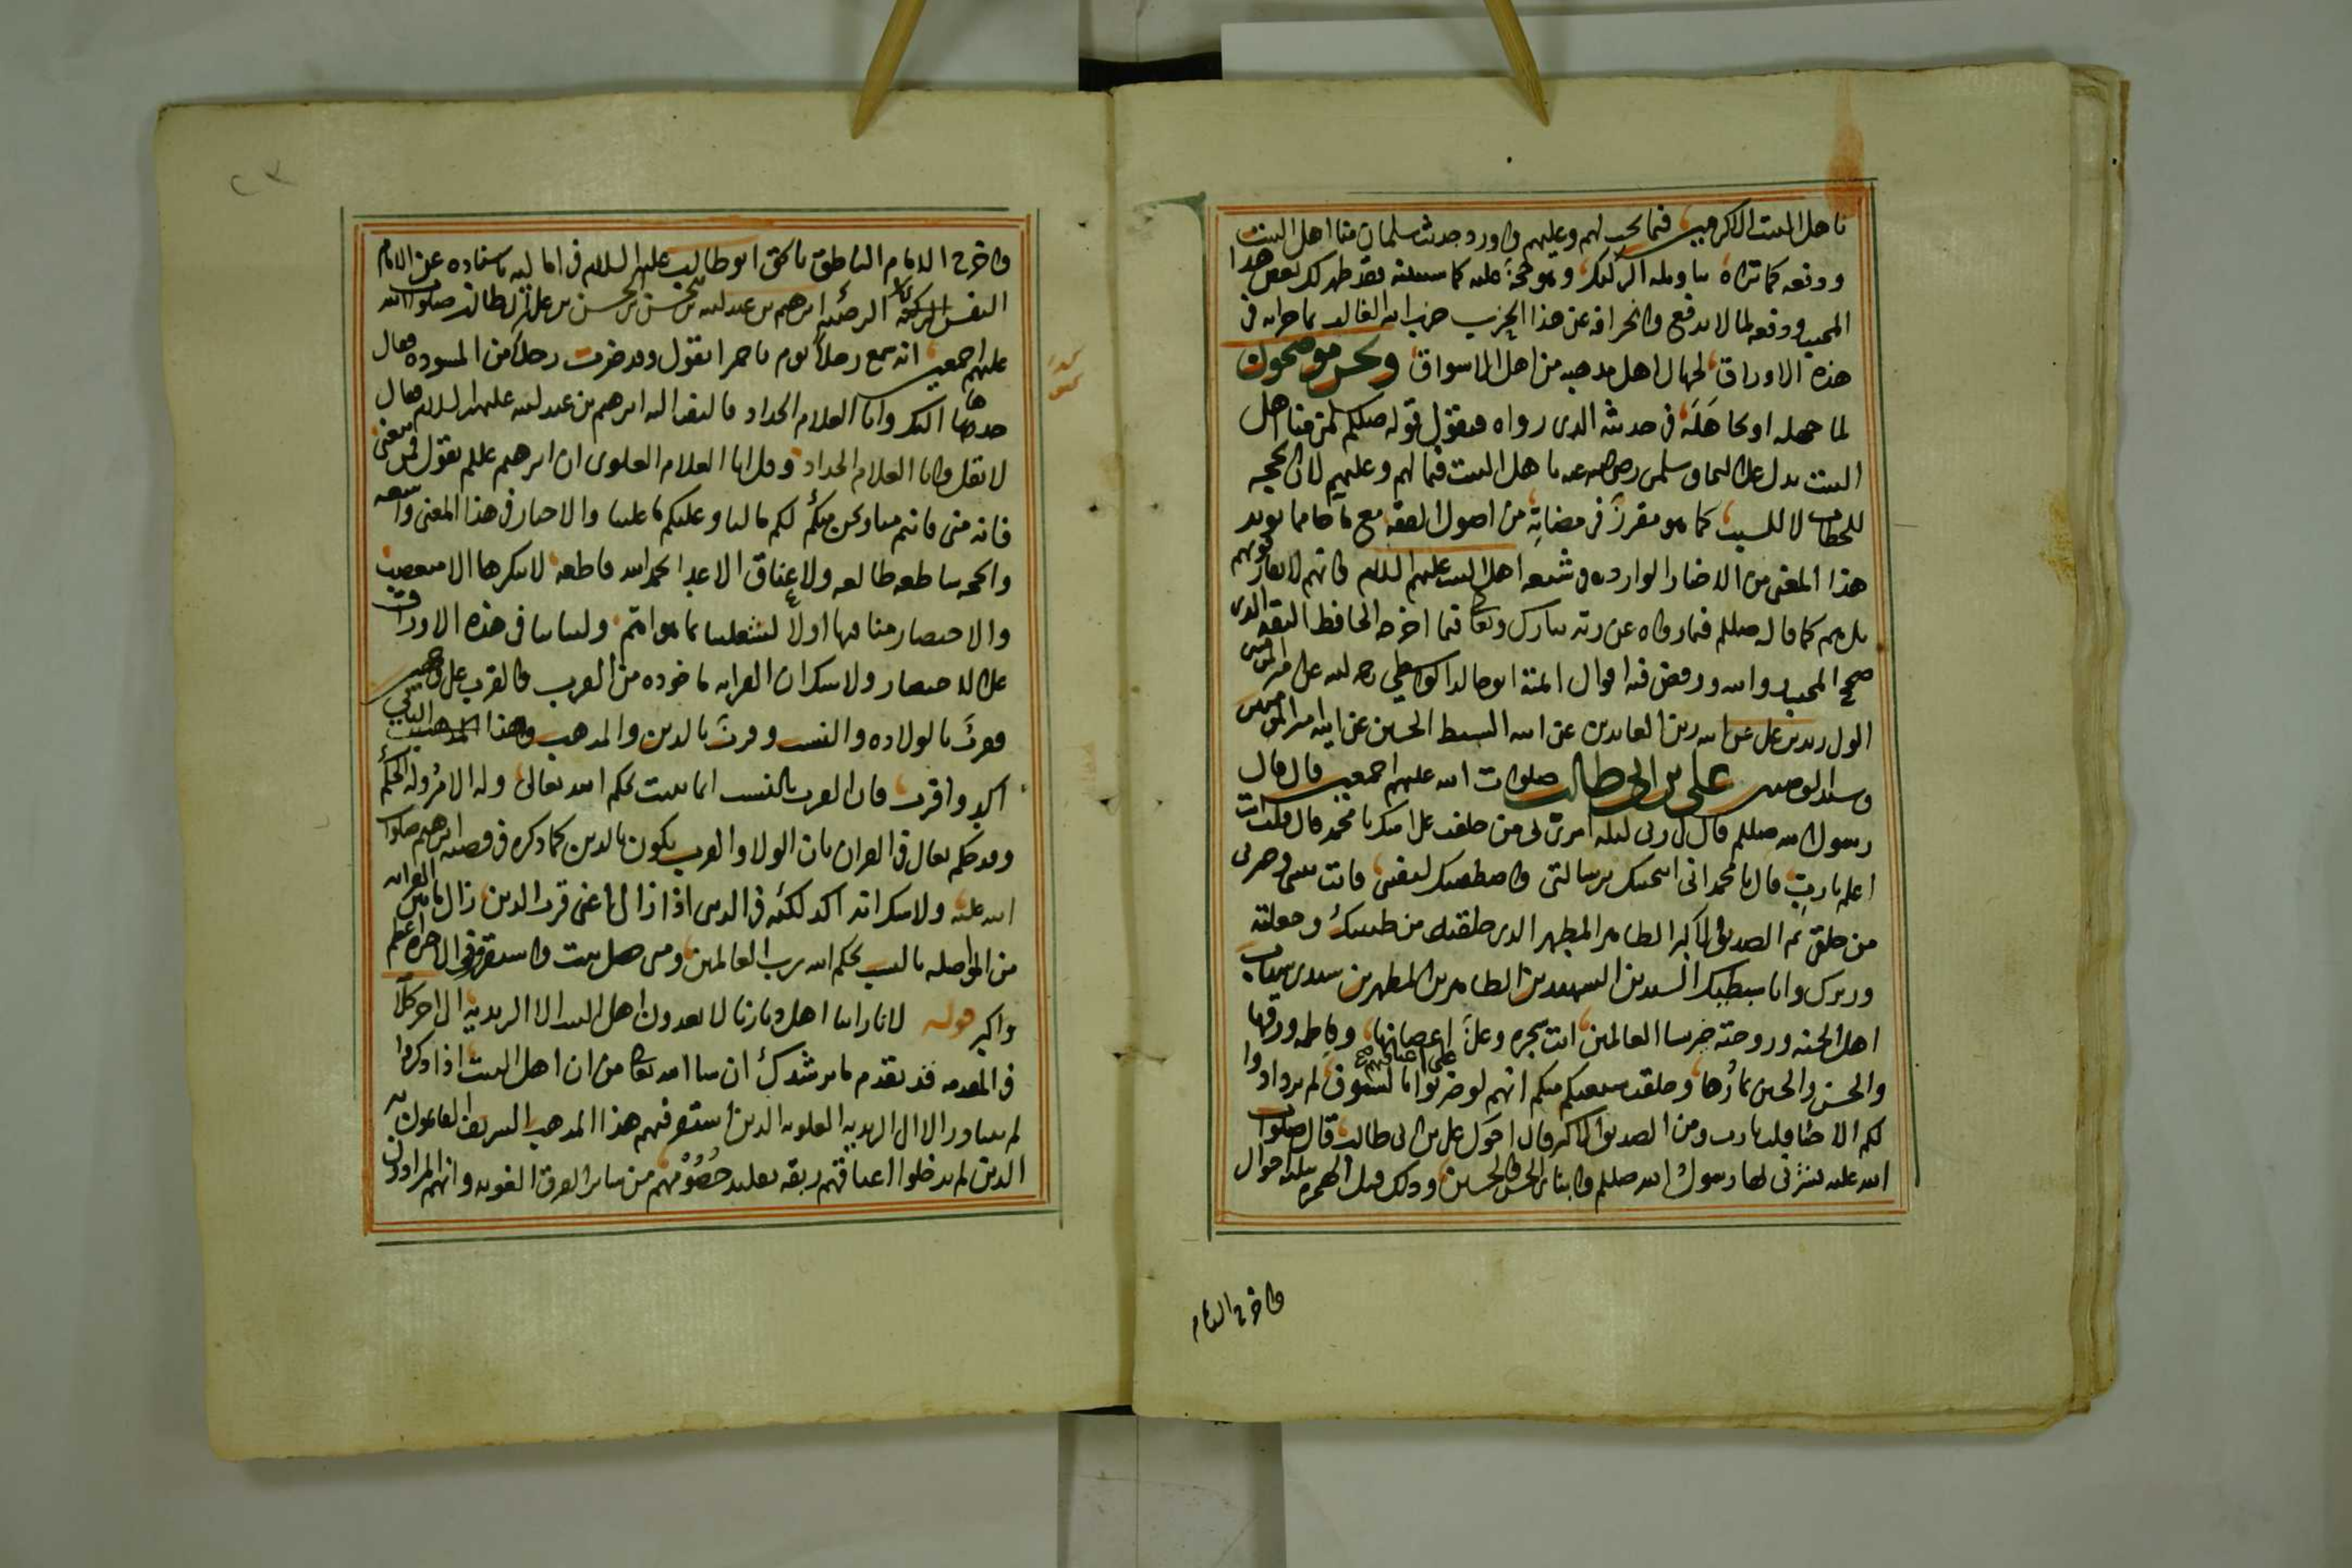 باهل البيت الاكرمين فيما يجب لهم وعليهم واورد حديث سلمان منا اهل البيت
ودفعه كما تراه بتاويله الركيك وهو حجة عليه كما سنبينه فقد ظهر لك بعض هذا
المجيب ودفعه لما لا يدفع وانحرافه عن هذا الحزب حزب الله الغالب بما حرابه في
هذه الاوراق لجهال اهل مذهبه من اهل الاسواق ونحن موضحون
لما جهله او تجاهله في حديثه الذي رواه فنقول قوله صللم سلمن منا اهل
البيت يدل على التحاق سلمن رضي الله عنه باهل البيت فيما لهم وعليهم لان الحجيه
للخطاب لا للسبب كما هو مقرر في مضانه من اصول الفقه مع ما جا مما يويد
هذا المعنى من الاخبار الوارده في شيعه اهل البيت عليهم السلام وانهم لا يفارقونهم
بل هم كما قاله صللم فيما رواه عن ربه تبارك وتعالى فيما اخرجه الحافظ الثقه الذي
صحح المجيب روايته ورفض فيه اقوال ائمته ابو خالد الواسطي رحمه الله عن امير المومنين
الولي زيد بن علي عن ابيه زين العابدين عن ابيه السبط الحسين عن ابيه امير المومنين
وسيد الوصيين علي بن ابي طالب صلوات الله عليهم اجمعين قال قال
رسول الله صللم قال لي ربي ليلة اسري بي من خلفت على امتك يا محمد قال قلت انت
اعلم يا رب قال يا محمد اني انتجبتك برسالتي واصطفيتك لنفسي فانت نبيي وخيرتي
من خلقي ثم الصديق الاكبر الطاهر المطهر الذي خلقته من طينتك وجعلته
وزيرك وابا سبطيك السيدين الشهيدين الطاهرين المطهرين سيدي شباب
اهل الجنه وزوجته خير نسا العالمين انت شجره وعلي اغصانها وفاطمه ورقها
والحسن والحسين ثمارها وخلقت شيعتكم منكم انهم لو ضربوا على اعناقهم بالسيوف لم يزدادوا
لكم الا حبا قلت يا رب ومن الصديق الاكبر قال اخوك علي بن ابي طالب قال صلوات
الله عليه بشرني بها رسول الله صللم وابناي الحسن والحسين وذلك قبل الهجره بثلثه احوال
واخرج الامام
واخرج الامام الناطق بالحق ابو طالب عليه السلام في اماليه باسناده عن الامام
النفس الزكيه الرضيه ابرهيم بن عبد الله بن الحسن بن الحسن بن علي بن ابي طالب صلوات الله
عليهم اجمعين انه سمع رجلا يوم باخمرا يقول وقد ضرب رجلا من المسوده فقال
خذها اليك وانا الغلام الحداد فالتفت اليه ابرهيم بن عبد الله عليهم السلام فقال
لا تقل وانا الغلام الحداد وقل انا الغلام العلوي ان ابرهيم عللم يقول فمن تبعني
فانه مني فانتم منا ونحن منكم لكم مالنا وعليكم ما علينا والاخبار في هذا المعنى واسعه
والحجه ساطعه طالعه ولاعناق الاعدا بحمد الله قاطعه لا ينكرها الا متعصب
والاختصار منا فيها اولا لشغلنا بما هو اهم ولبنائنا في هذه الاوراق
على الاختصار ولا ينكر ان القرابه ماخوذه من القرب والقرب على وجهين
قرب بالولاده والنسب وقرب بالدين والمذهب وهذا الثاني
اكد واقرب فان القرب بالنسب انما يثبت بحكم الله تعالى وله الامر وله الحكم
وقد حكم تعالى في القران بان الولا والقرب يكون بالدين كما ذكره في قصة ابرهيم صلوات
الله عليه ولا ينكر انه اكد لكنه في الدين اذا زال اعني قرب الدين زال ما بين القرابه
من المواصله بالنسب بحكم الله رب العالمين ومن حصل ثبت واستقر وفي الاخره اعظم
واكبر قوله لانا راينا اهل ديارنا لا يعدون اهل البيت الا الزيديه الى اخر كلامه
في المقدمه قد تقدم ما يرشدك ان شا الله تعالى من ان اهل البيت اذا ذكروا
لم يتبادر الا ال الزيديه العلويه الذين استقر فيهم هذا المذهب الشريف القايلون به
الذين لم يدخلوا اعناقهم ربقه تقليد خصومهم من ساير الفرق الغويه وانهم المرادون